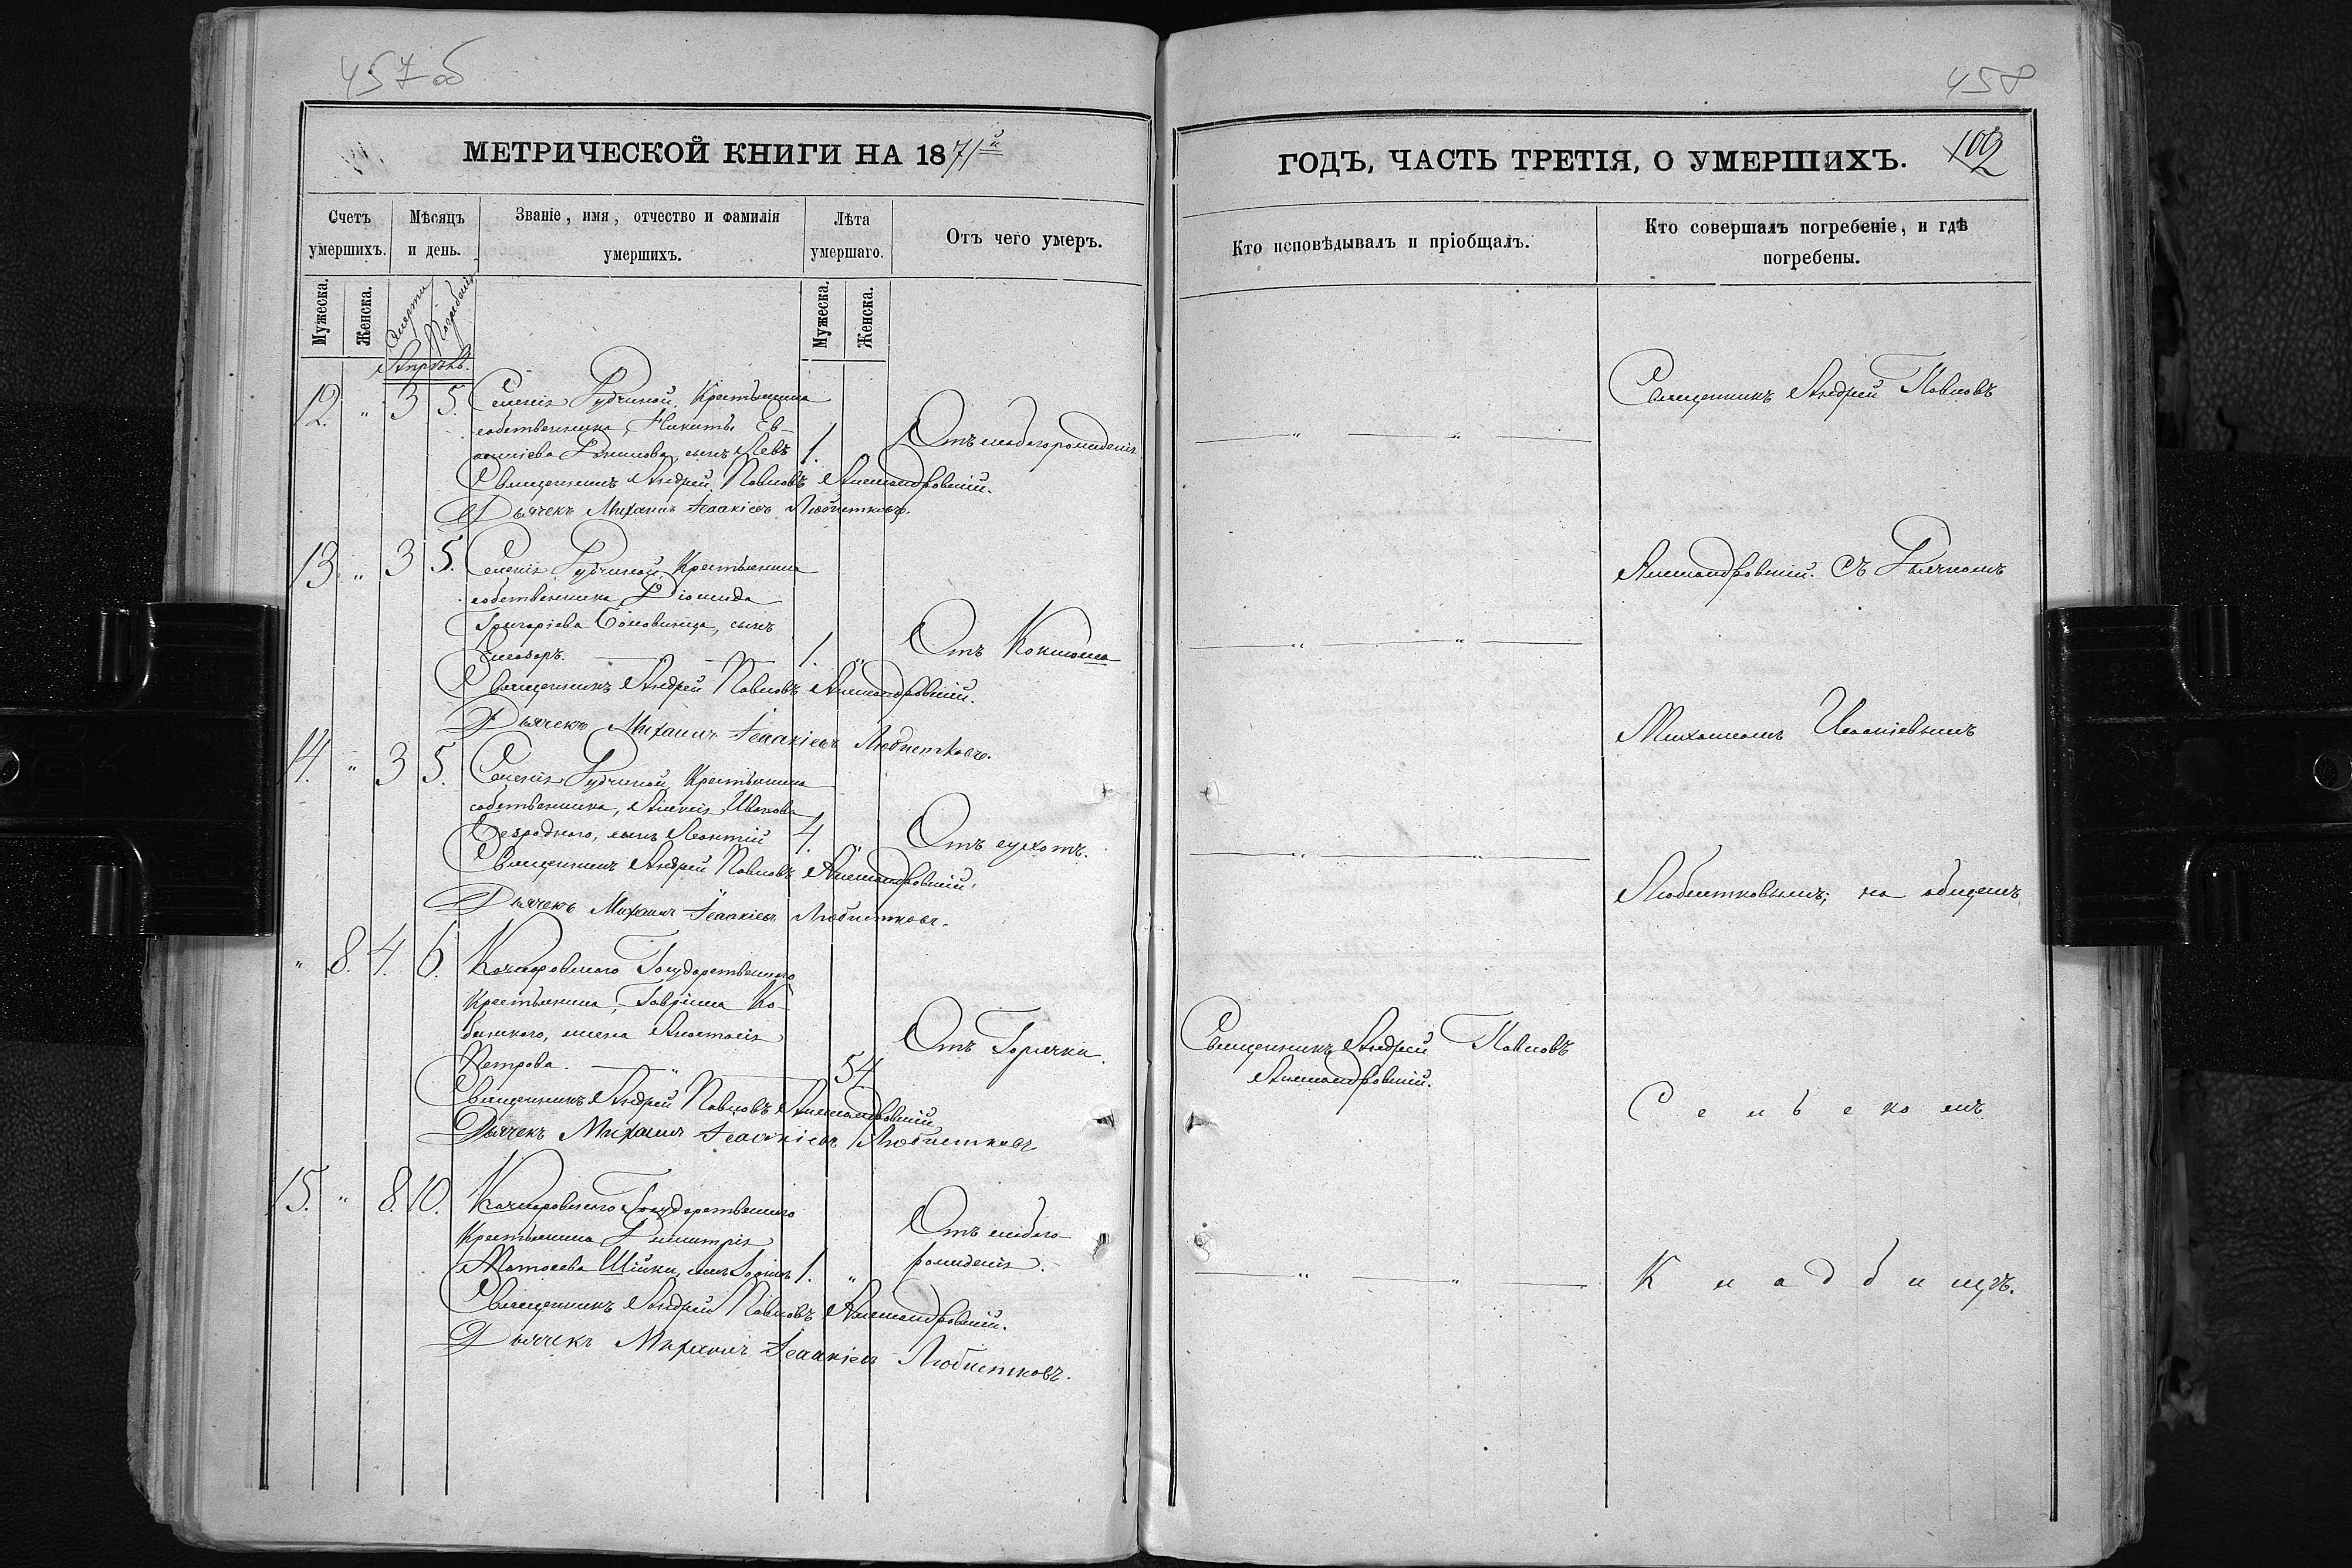 457 об
МЕТРИЧЕСКОЙ КНИГИ НА 1871й
Счетъ умершихъ.
Мѣсяцъ и день.
Званіе, имя, отчество и фамилія умершихъ.
Лѣта умершаго.
Отъ чего умеръ.
Мужеска.
Женска.
Смерти
Погребенія
Мужеска.
Женска.
Апрѣль.
12. " 3 5. Селенія Рудчиной, Крестьянина
собственника, Никиты Ев-
сынъ Левъ 1. Отъ слабого рожденія
Священникъ Андрей Павловъ Александровскій.
Дьячекъ Михаилъ Ісаакіевъ Любистковъ.
13. " 3 5. Селенія Рудчиной, Крестьянина
собственника, Діомида
Григорієва сынъ
Елеазаръ. 1. " Отъ Коклюша
Священникъ Андрей Павловъ Александровскій.
Дьячекъ Михаилъ Ісаакіевъ Любистковъ.
14. " 3 5. Селенія Рудчиной, Крестьянина
собственника, Алексія Иванова
Безродного, сынъ Леонтій 4. " Отъ сухотъ.
Священникъ Андрей Павловъ Александровскій.
Дьячекъ Михаилъ Ісаакіевъ Любистковъ.
" 8. 4. 6. Государственного
Крестьянина, Гавріила Ко-
жена Анастасія
Петрова. " 54 Отъ Горячки.
Священникъ Андрей Павловъ Александровскій
Дьячекъ Михаилъ Ісаакіевъ Любистковъ
15. " 8. 10. Государственного
Крестьянина Димитрія
Шійки, сынъ 1. " Отъ слабого
рожденія.
Священникъ Андрей Павловъ Александровскій.
Дьячекъ Михаилъ Ісаакіевъ Любистковъ.
458
ГОДЪ, ЧАСТЬ ТРЕТІЯ, О УМЕРШИХЪ.
Кто исповѣдывалъ и пріобщалъ.
Кто совершалъ погребеніе, и гдѣ погребены.
Священникъ Андрей Павловъ
Александровскій. Съ Дьячкомъ
Михаиломъ Исаакіевымъ
Любистковымъ; на общемъ
Священникъ Андрей Павловъ
Александровскій.
Сельскомъ
Кладбищѣ.